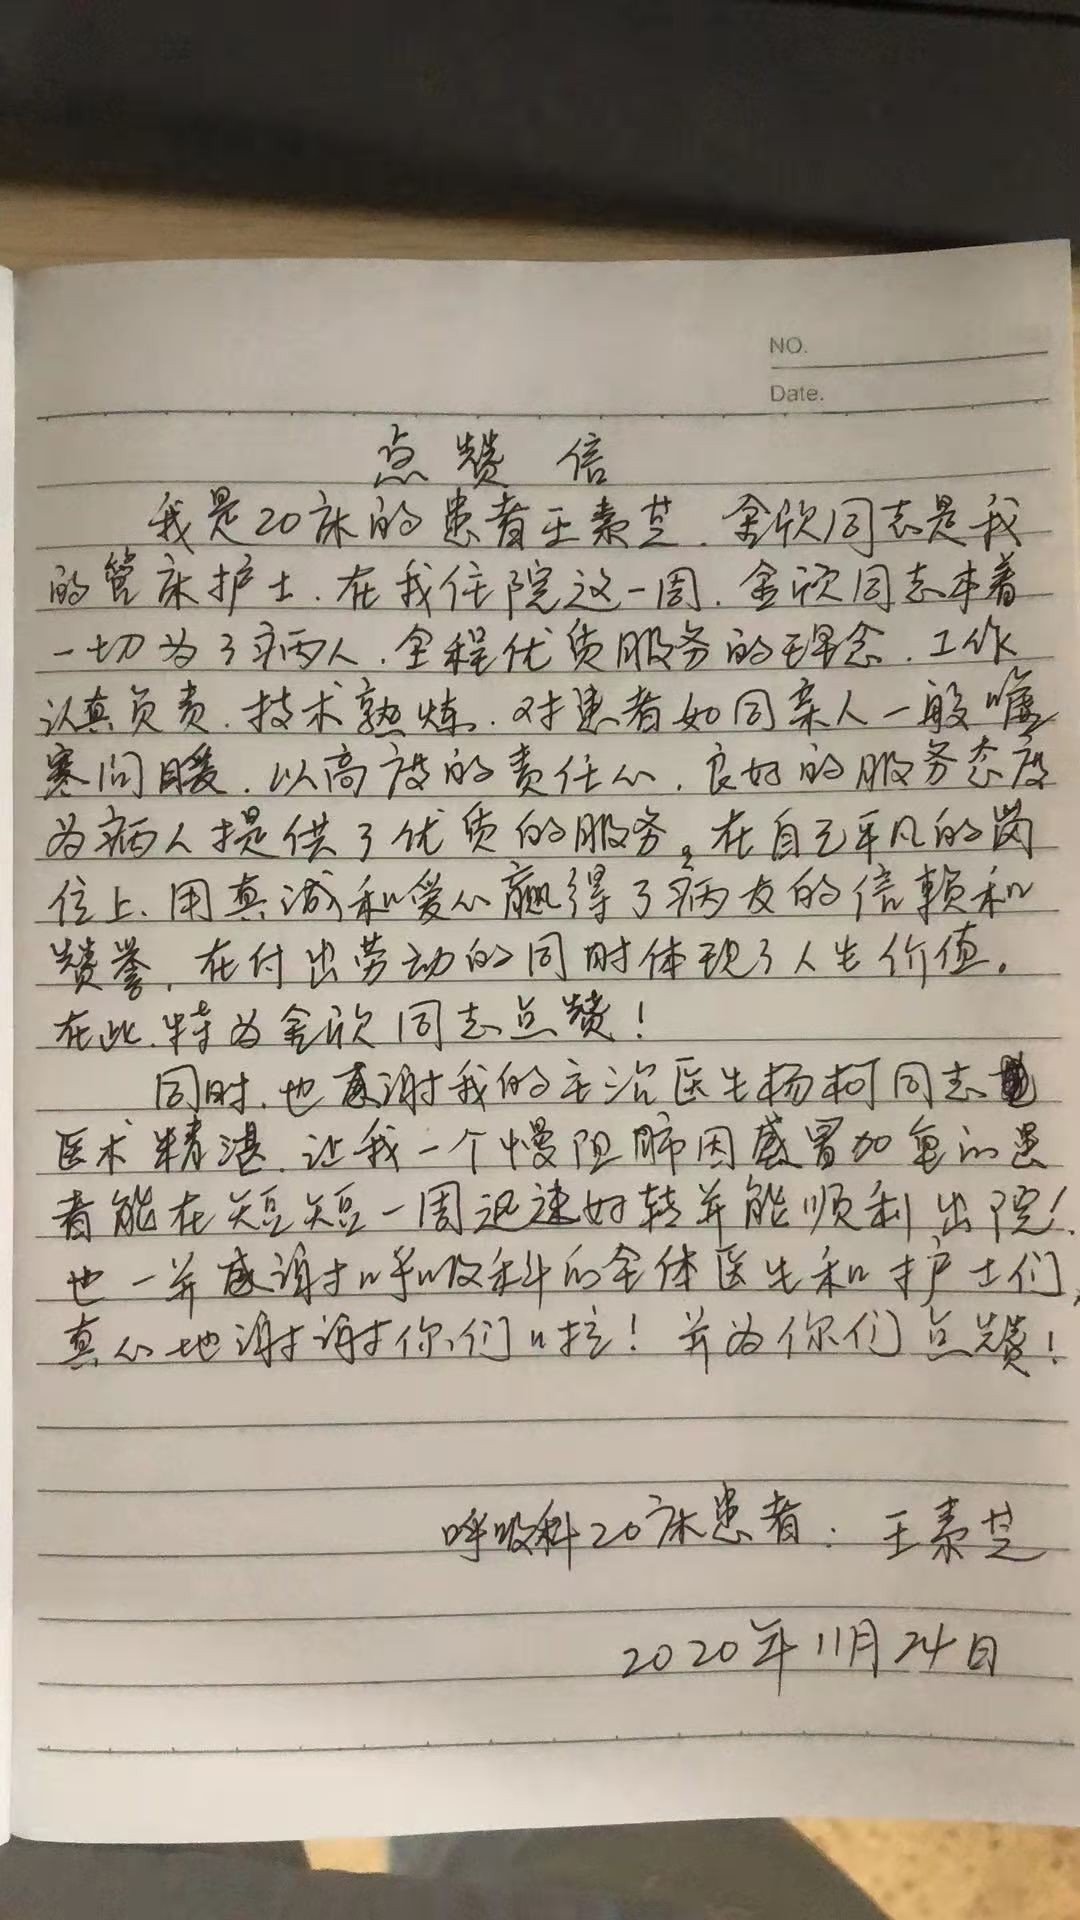 NO.
Date.
点赞信
我是20床的患者王素芝.金欣同志是我
的管床护士.在我住院这一周.金欣同志本着
一切为了病人.全程优质服务的理念.工作
认真负责.技术熟炼.对患者如同亲人一般嘘
寒问暖.以高度的责任心.良好的服务态度
为病人提供了优质的服务。在自己平凡的岗
位上.用真诚和爱心赢得了病友的信赖和
赞誉.在付出劳动的同时体现了人生价值。
在此.特为金欣同志点赞!
同时.也感谢我的主治医生杨柯同志
医术精湛.让我一个慢阻肺因感冒加重的患
者能在短短一周迅速好转并能顺利出院!
也一并感谢呼吸科的全体医生和护士们,
真心地谢谢你们啦!并为你们点赞!
呼吸科20床患者:王素芝
2020年11月24日